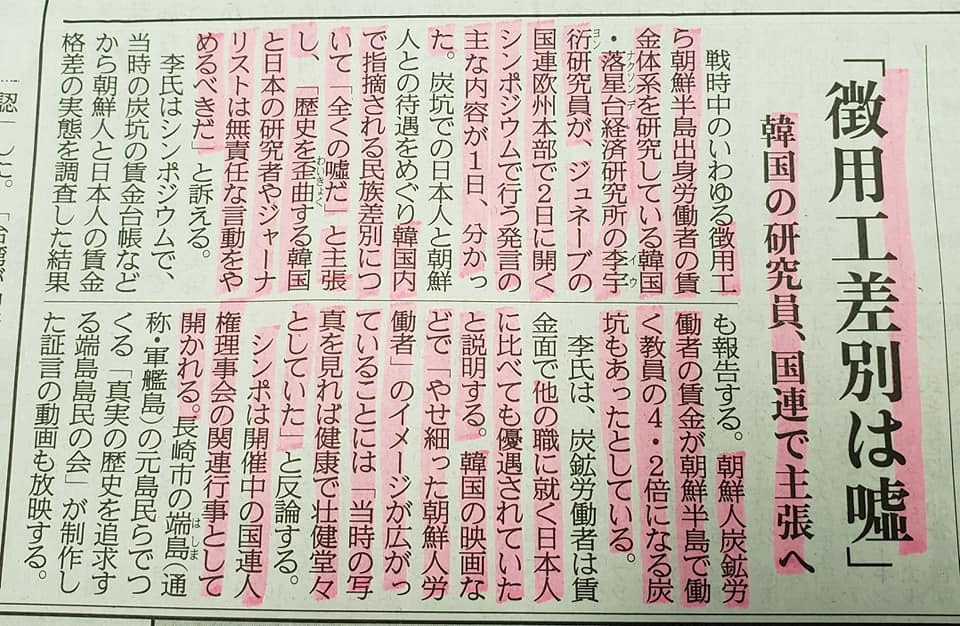 「徴用工差別は嘘」
韓国の研究員、国連で主張へ
戦時中のいわゆる徴用工
ら朝鮮半島出身労働者の賃
金体系を研究している韓国
・落星台経済研究所の李宇
ナクソンデ
イウ
衍研究員が、ジュネーブの
ヨン
国連欧州本部で2日に開く
シンポジウムで行う発言の
主な内容が1日、分かっ
た。炭坑での日本人と朝鮮
人との待遇をめぐり韓国内
で指摘される民族差別につ
いて「全くの嘘だ」と主張
し、「歴史を歪曲する韓国
わいきょく
と日本の研究者やジャーナ
リストは無責任な言動をや
めるべきだ」と訴える。
李氏はシンポジウムで、
当時の炭坑の賃金台帳など
から朝鮮人と日本人の賃金
格差の実態を調査した結果
も報告する。朝鮮人炭鉱労
働者の賃金が朝鮮半島で働
く教員の4・2倍になる炭
坑もあったとしている。
李氏は、炭鉱労働者は賃
金面で他の職に就く日本人
に比べても優遇されていた
と説明する。韓国の映画な
どで「やせ細った朝鮮人労
働者」のイメージが広がっ
ていることには「当時の写
真を見れば健康で壮健堂々
としていた」と反論する。
シンポは開催中の国連人
権理事会の関連行事として
開かれる。長崎市の端島（通
はしま
称・軍艦島）の元島民らでつ
くる「真実の歴史を追求す
る端島島民の会」が制作し
た証言の動画も放映する。
認